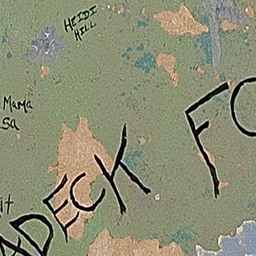 HEIDI
HILL
Mama
sa
it
ADECK FO